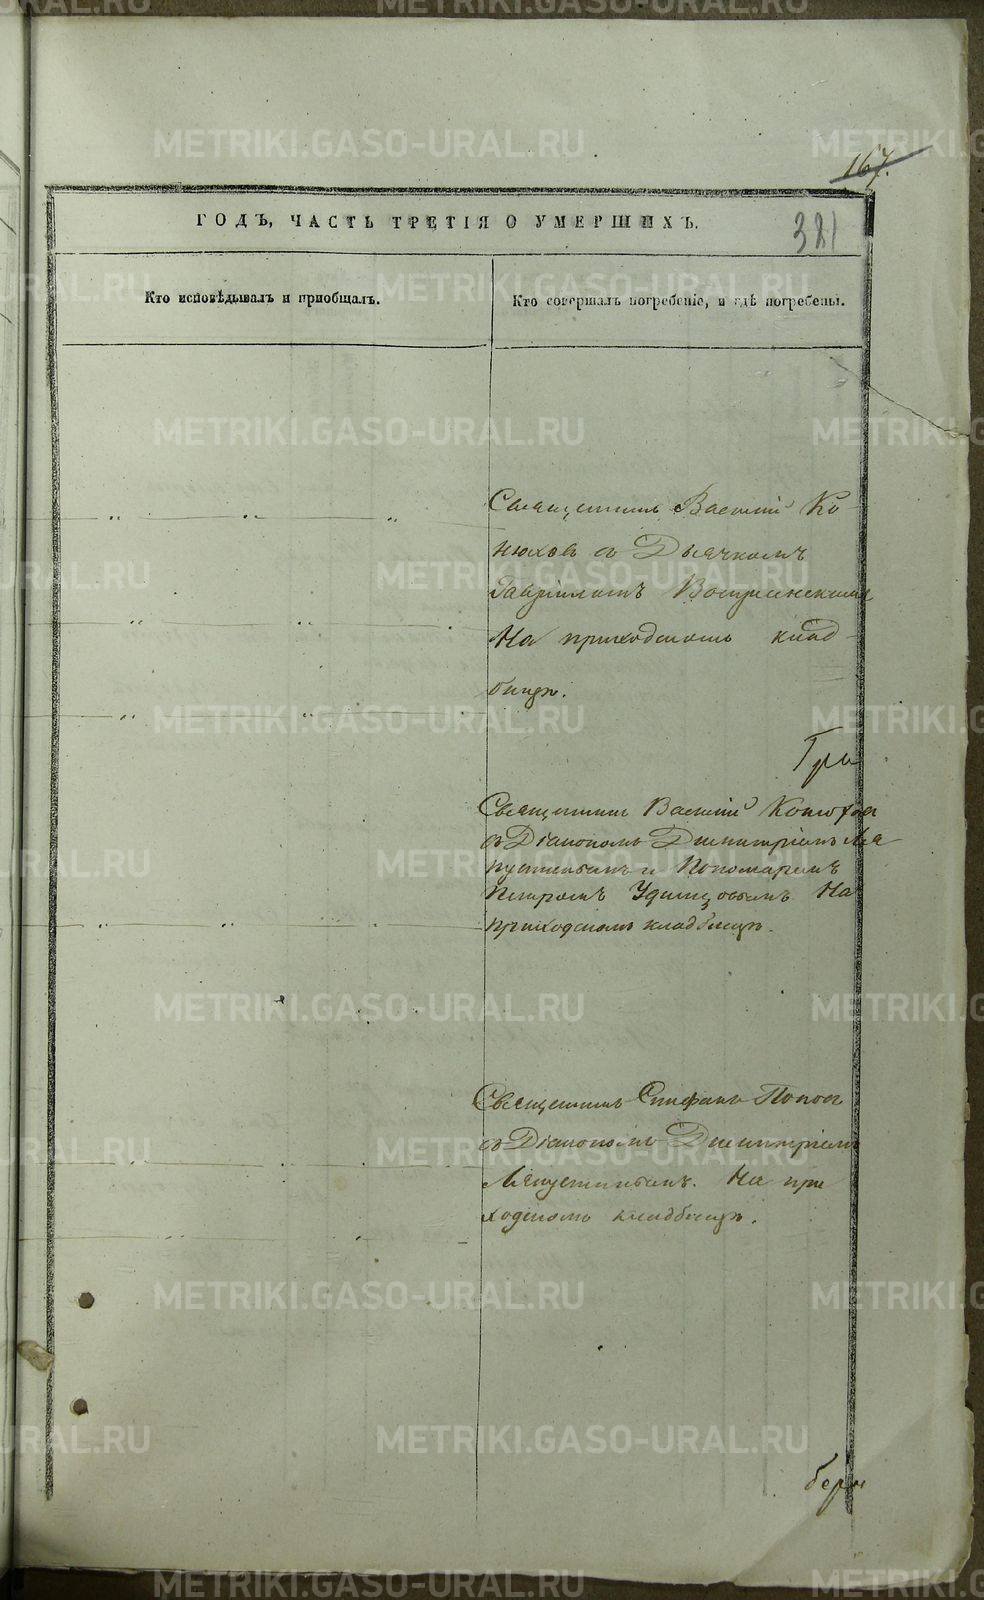 167.
ГОДЪ, ЧАСТЬ ТРЕТІЯ О УМЕРШИХЪ.
381
Кто исповѣдывалъ и пріобщалъ.
Кто совершалъ погребеніе, и гдѣ погребены.
Священникъ Василій Ко-
нюховъ съ Дьячкомъ
Гавріиломъ Воскресенскимъ
На приходскомъ клад-
бищѣ.
Гри
Священникъ Василій Конюховъ
съ Діакономъ Димитріемъ Ля-
пустинымъ и Пономаремъ
Петромъ Удинцовымъ На
приходскомъ кладбищѣ.
Священникъ Стефанъ Поповъ
съ Діакономъ Димитріемъ
Ляпустинымъ. На при
ходскомъ кладбищѣ.
бери
METRIKI.GASO-URAL.RU